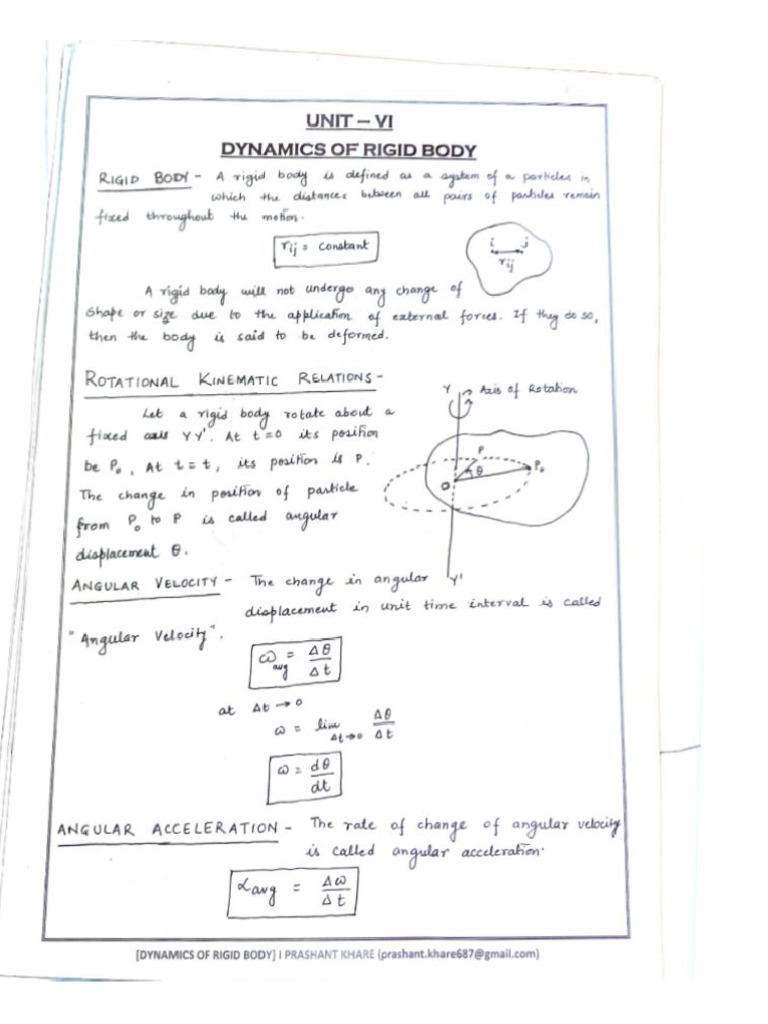 UNIT – VI
DYNAMICS OF RIGID BODY
RIGID BODY - A rigid body is defined as a system of a particles in
which the distances between all pairs of particles remain
fixed throughout the motion.
rij = constant
i j
rij
A rigid body will not undergo any change of
shape or size due to the application of external forces. If they do so,
then the body is said to be deformed.
ROTATIONAL KINEMATIC RELATIONS -
Y Axis of Rotation
Let a rigid body rotate about a
fixed axis YY'. At t=0 its position
be P₀, At t=t, its position is P.
The change in position of particle
from P₀ to P is called angular
displacement θ.
P
P₀
θ
O
Y'
ANGULAR VELOCITY - The change in angular
displacement in unit time interval is called
"Angular Velocity".
ω avg = Δθ/Δt
at Δt → 0
ω = lim Δt→0 Δθ/Δt
ω = dθ/dt
ANGULAR ACCELERATION - The rate of change of angular velocity
is called angular acceleration.
αavg = Δω/Δt
[DYNAMICS OF RIGID BODY] I PRASHANT KHARE (prashant.khare687@gmail.com)